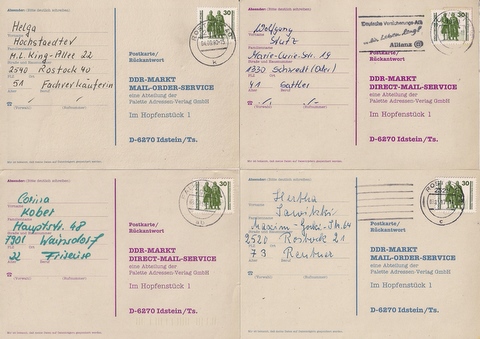 Absender: (Bitte deutlich schreiben)
Helga
Hochstaedter
M.L. King-Allee 22
2540 Rostock 40
51 Fachverkäuferin
Postkarte/
Rückantwort
DDR-MARKT
MAIL-ORDER-SERVICE
eine Abteilung der
Palette Adressen-Verlag GmbH
Im Hopfenstück 1
D-6270 Idstein/Ts.
30
Absender: (Bitte deutlich schreiben)
Wolfgang
Stutz
Marie-Curie-Str. 19
1330 Schwedt (Oder)
41 Sattler
Deutsche Versicherungs-AG
Allianz
Postkarte/
Rückantwort
DDR-MARKT
DIRECT-MAIL-SERVICE
eine Abteilung der
Palette Adressen-Verlag GmbH
Im Hopfenstück 1
D-6270 Idstein/Ts.
30
Absender: (Bitte deutlich schreiben)
Corina
Kober
Hauptstr. 48
7901 Wainsdorf
32 Friseuse
Postkarte/
Rückantwort
DDR-MARKT
DIRECT-MAIL-SERVICE
eine Abteilung der
Palette Adressen-Verlag GmbH
Im Hopfenstück 1
D-6270 Idstein/Ts.
30
Absender: (Bitte deutlich schreiben)
Hertha
Maxim-Gorki-Str. 64
2520 Rostock 21
73 Rentner
Postkarte/
Rückantwort
DDR-MARKT
MAIL-ORDER-SERVICE
eine Abteilung der
Palette Adressen-Verlag GmbH
Im Hopfenstück 1
D-6270 Idstein/Ts.
30